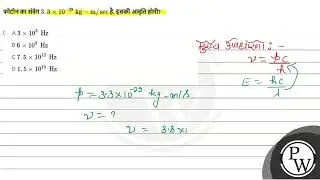 फोटोन का संवेग 3.3 × 10⁻²⁹ kg – m/sec है. इसकी आवृति होगी?
A 3 × 10³ Hz
B 6 × 10³ Hz
C 7.5 × 10¹² Hz
D 1.5 × 10¹³ Hz
मुख्य अवधारणा : -
ν = pc/h
E = hc/λ
p = 3.3×10⁻²⁹ kg-m/s
ν = ?
ν = 3.3×1
PW